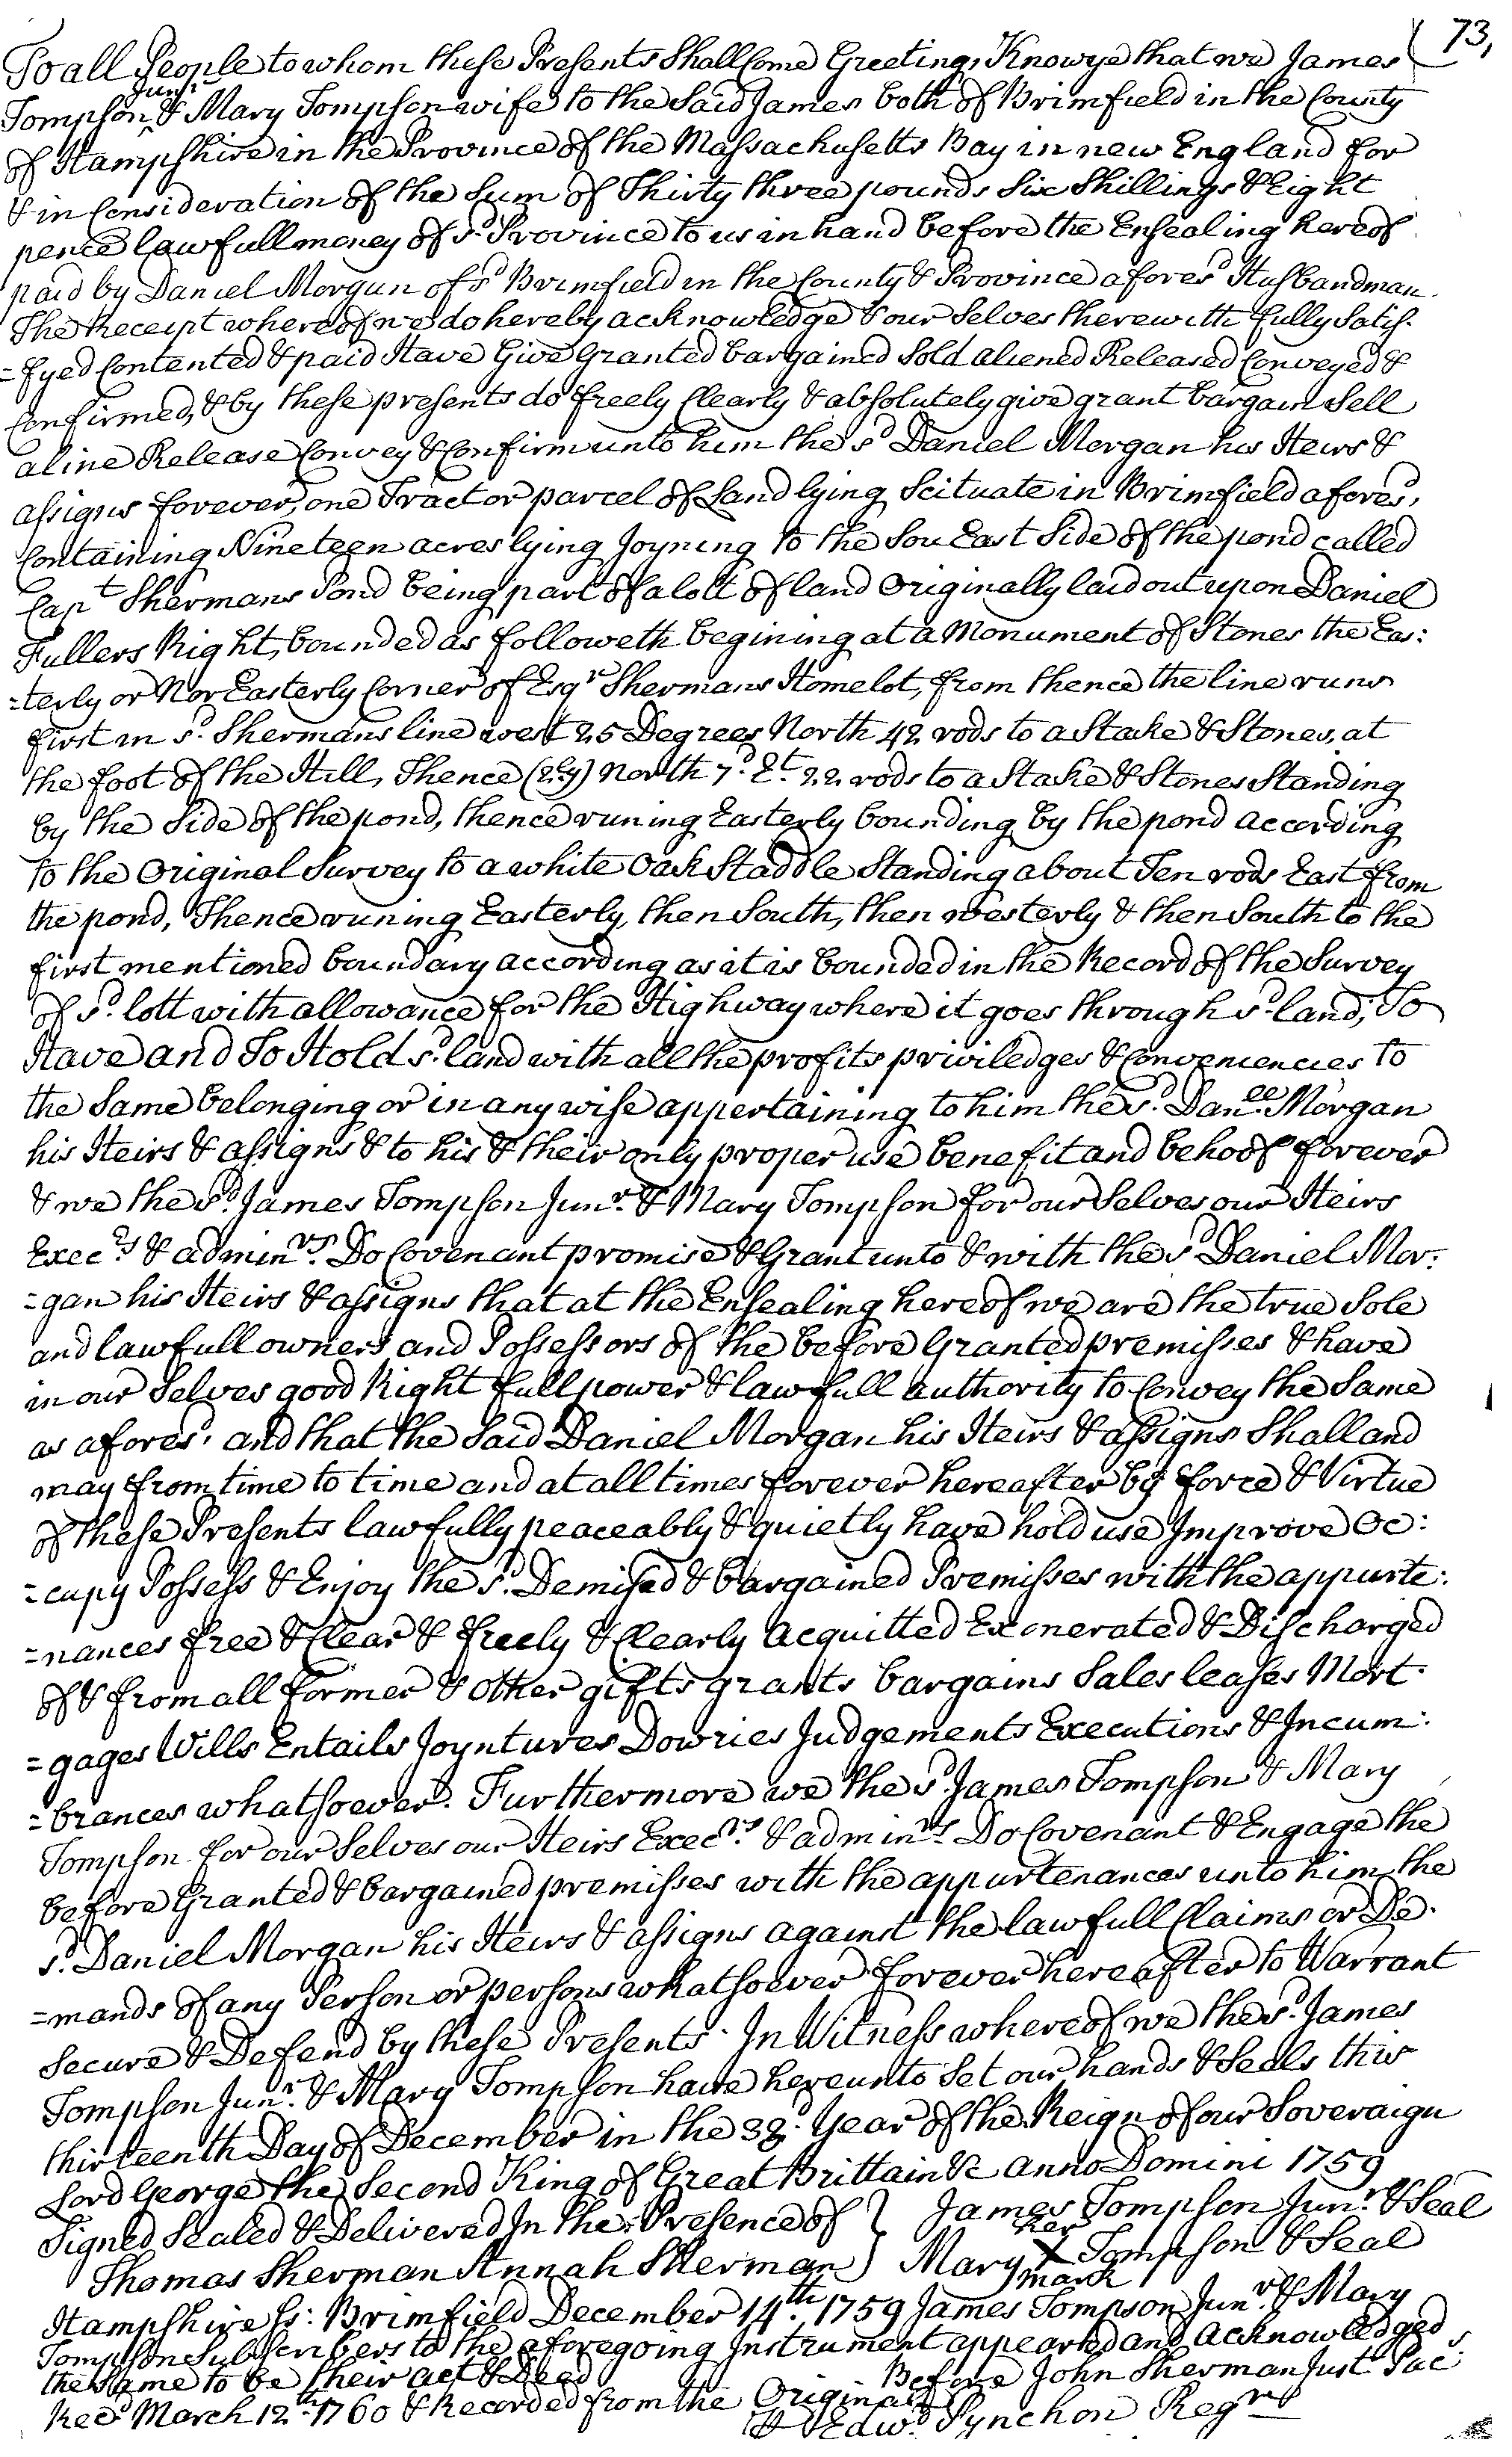 73,
To all People to whom these Presents Shall Come Greeting, Know ye that we James
Tompson Junr & Mary Tompson wife to the Said James both of Brimfield in the County
of Hampshire in the Province of the Massachusetts Bay in new England for
& in Consideration of the Sum of Thirty three pounds Six Shillings & Eight
pence lawfull money of sd. Province to us in hand before the Ensealing hereof
paid by Daniel Morgan of sd Brimfield in the County & Province aforesd Husbandman
The Receipt whereof we do hereby acknowledge & our Selves therewith fully Satis-
=fyed Contented & paid Have Give Granted bargained Sold aliened Released Conveyed &
Confirmed, & by these presents do freely Clearly & absolutely give grant bargain Sell
aline Release Convey & Confirm unto him the sd Daniel Morgan his Heirs &
assigns forever, one Tract or parcel of Land lying Scituate in Brimfield aforesd,
Containing Nineteen acres lying Joyning to the Sou East Side of the pond called
Capt Shermans Pond being part of a lott of land Originally laid out upon Daniel
Fullers Right, bounded as followeth begining at a Monument of Stones the Eas:
=terly or Nor Easterly Corner of Esqr Shermans Homelot, from thence the line runs
first in sd. Shermans line west 25 Degrees North 42 rods to a Stake & Stones, at
the foot of the Hill, Thence (2ly) North 7d. Et. 22 rods to a Stake & Stones Standing
by the Side of the pond, thence runing Easterly bounding by the pond according
to the Original Survey to a white Oak Staddle Standing about Ten rods East from
the pond, Thence runing Easterly, then South, then westerly & then South to the
first mentioned boundary according as it is bounded in the Record of the Survey
of sd. lott with allowance for the Highway where it goes through sd. land; To
Have and To Hold sd. land with all the profits priviledges & Conveniencies to
the Same belonging or in any wise appertaining to him the sd. Danll. Morgan
his Heirs & assigns & to his & their only proper use benefit and behoof forever
& we the sd. James Tompson Junr. & Mary Tompson for our Selves our Heirs
Execrs. & adminrs. Do Covenant promise & Grant unto & with the sd Daniel Mor:
=gan his Heirs & assigns that at the Ensealing hereof we are the true Sole
and lawfull owners and Possessors of the before Granted premisses & have
in our Selves good Right full power & lawfull authority to Convey the Same
as aforesd. and that the Said Daniel Morgan his Heirs & assigns Shall and
may from time to time and at all times forever hereafter by force & Virtue
of these Presents lawfully peaceably & quietly have hold use Improve Oc:
=cupy Possess & Enjoy the sd. Demised & bargained Premisses with the appurte:
=nances free & Clear & freely & Clearly Acquitted Exonerated & Discharged
of & from all former & other gifts grants bargains Sales leases Mort-
=gages Wills Entails Joyntures Dowries Judgements Executions & Incum:
=brances whatsoever. Furthermore we the sd. James Tompson & Mary
Tompson for our Selves our Heirs Execrs. & adminrs Do Covenant & Engage the
before Granted & bargained premisses with the appurtenances unto him the
sd. Daniel Morgan his Heirs & assigns against the lawfull Claims or De-
=mands of any Person or persons whatsoever forever hereafter to Warrant
Secure & Defend by these Presents. In Witness whereof we the sd. James
Tompson Junr. & Mary Tompson have hereunto Set our hands & Seals this
thirteenth Day of December in the 33d. Year of the Reign of our Soveraign
Lord George the Second King of Great Brittain &c anno Domini 1759
Signed Sealed & Delivered In the Presence of } James Tompson Junr. & Seal
Thomas Sherman Annah Sherman } Mary her X mark Tompson & Seal
Hampshire ss: Brimfield December 14th. 1759 James Tompson Junr. & Mary
Tompson Subscribers to the aforegoing Instrument appeared and acknowledged
the Same to be their act & Deed Before John Sherman Just Pacs.
Recd March 12th. 1760 & Recorded from the Original
Edwd. Pynchon Regr